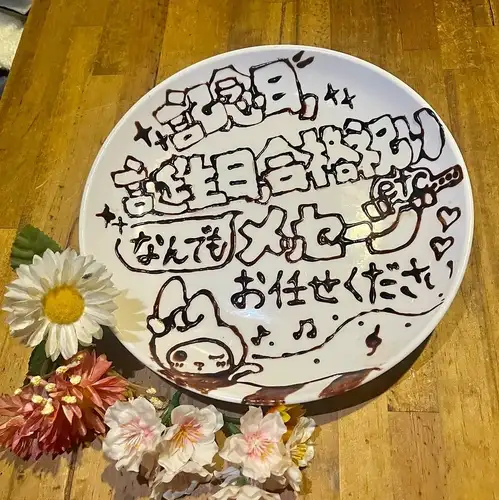 記念日、
誕生日合格祝い
etc
なんでもメッセージ
お任せください